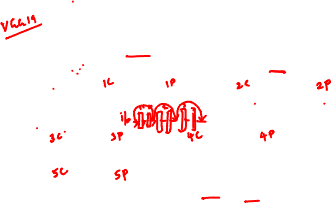 VGG19
1C 1P 2C 2P
3C 3P 4C 4P
5C 5P